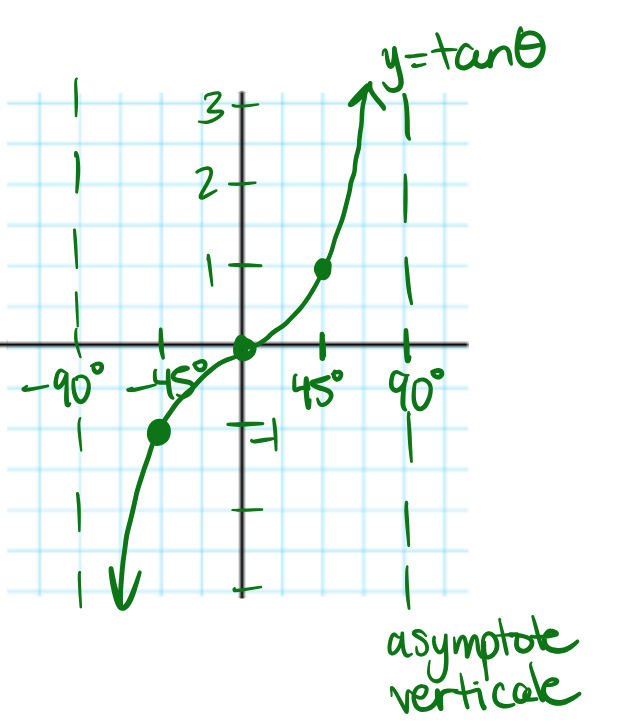 y=tanθ
3
2
1
-90° -45° 45° 90°
-1
asymptote
verticale